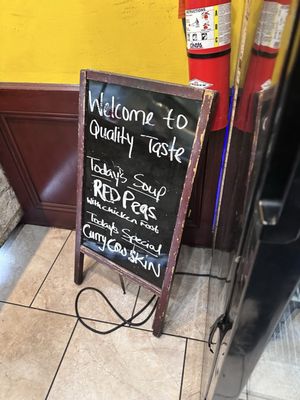 Welcome to
Quality Taste
Today's Soup
RED Peas
with chicken Foot
Today's Special
Curry COW SKIN
INSTRUCTIONS